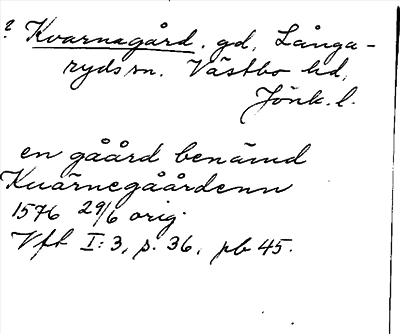 ? Kvarnagård. gd, Långa-
ryds sn. Västbo hd,
Jönk. l.
en gåård benämd
Kuärnegåårdenn
1576 29/6 orig.
Vft I:3, s. 36, pb 45.